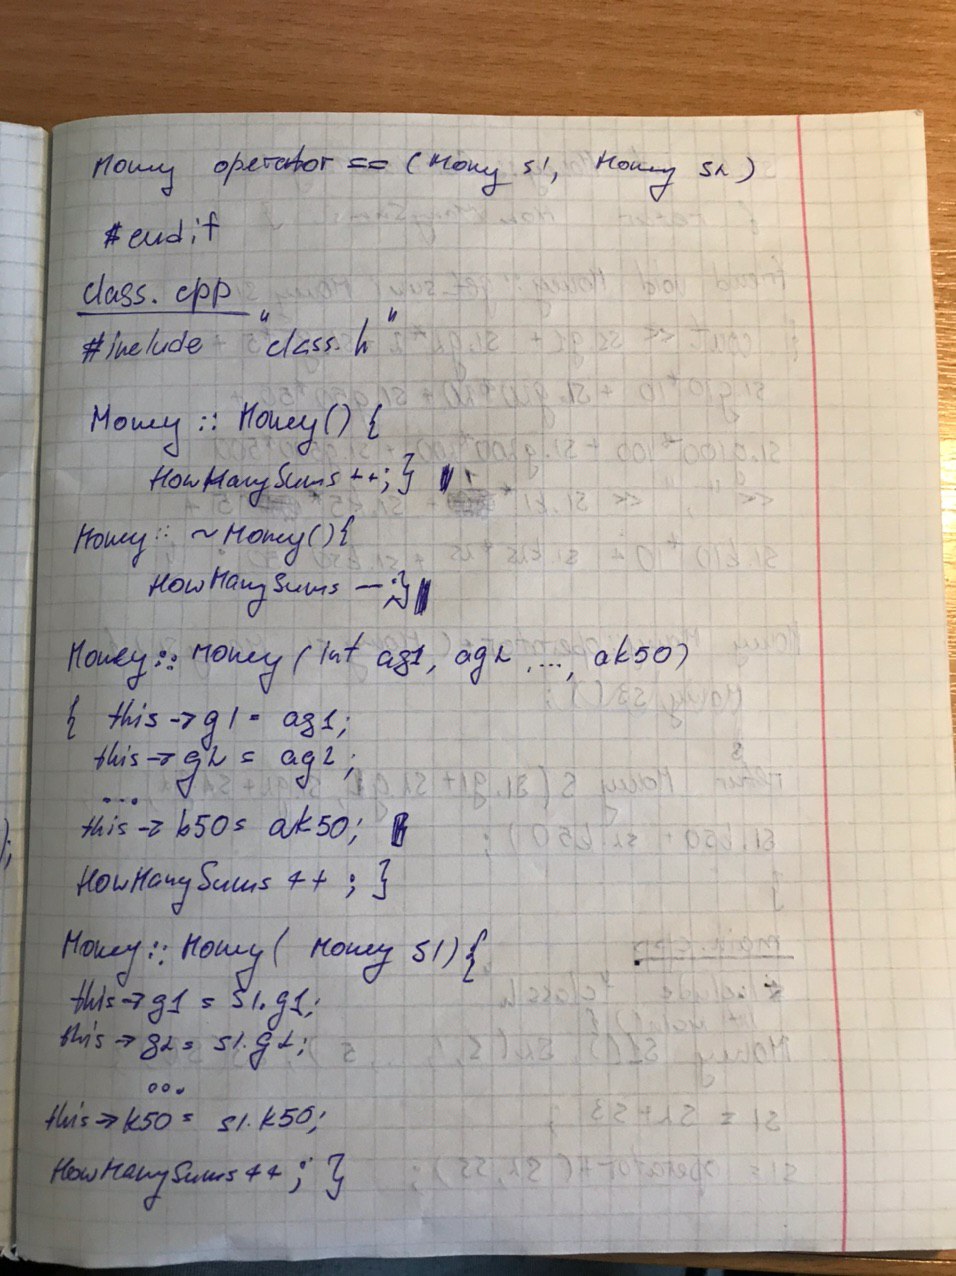 Money operator == (Money s1, Money s2)
#endif
class.cpp
#include "class.h"
Money :: Money() {
HowManySums ++; }
Money :: ~Money(){
HowManySums --; }
Money :: Money (int ag1, ag2, ..., ak50)
{ this->g1 = ag1;
this->g2 = ag2;
...
this->k50 = ak50;
HowManySums ++ ; }
Money :: Money ( Money s1) {
this->g1 = s1.g1;
this->g2 = s1.g2;
...
this->k50 = s1.k50;
HowManySums ++ ; }